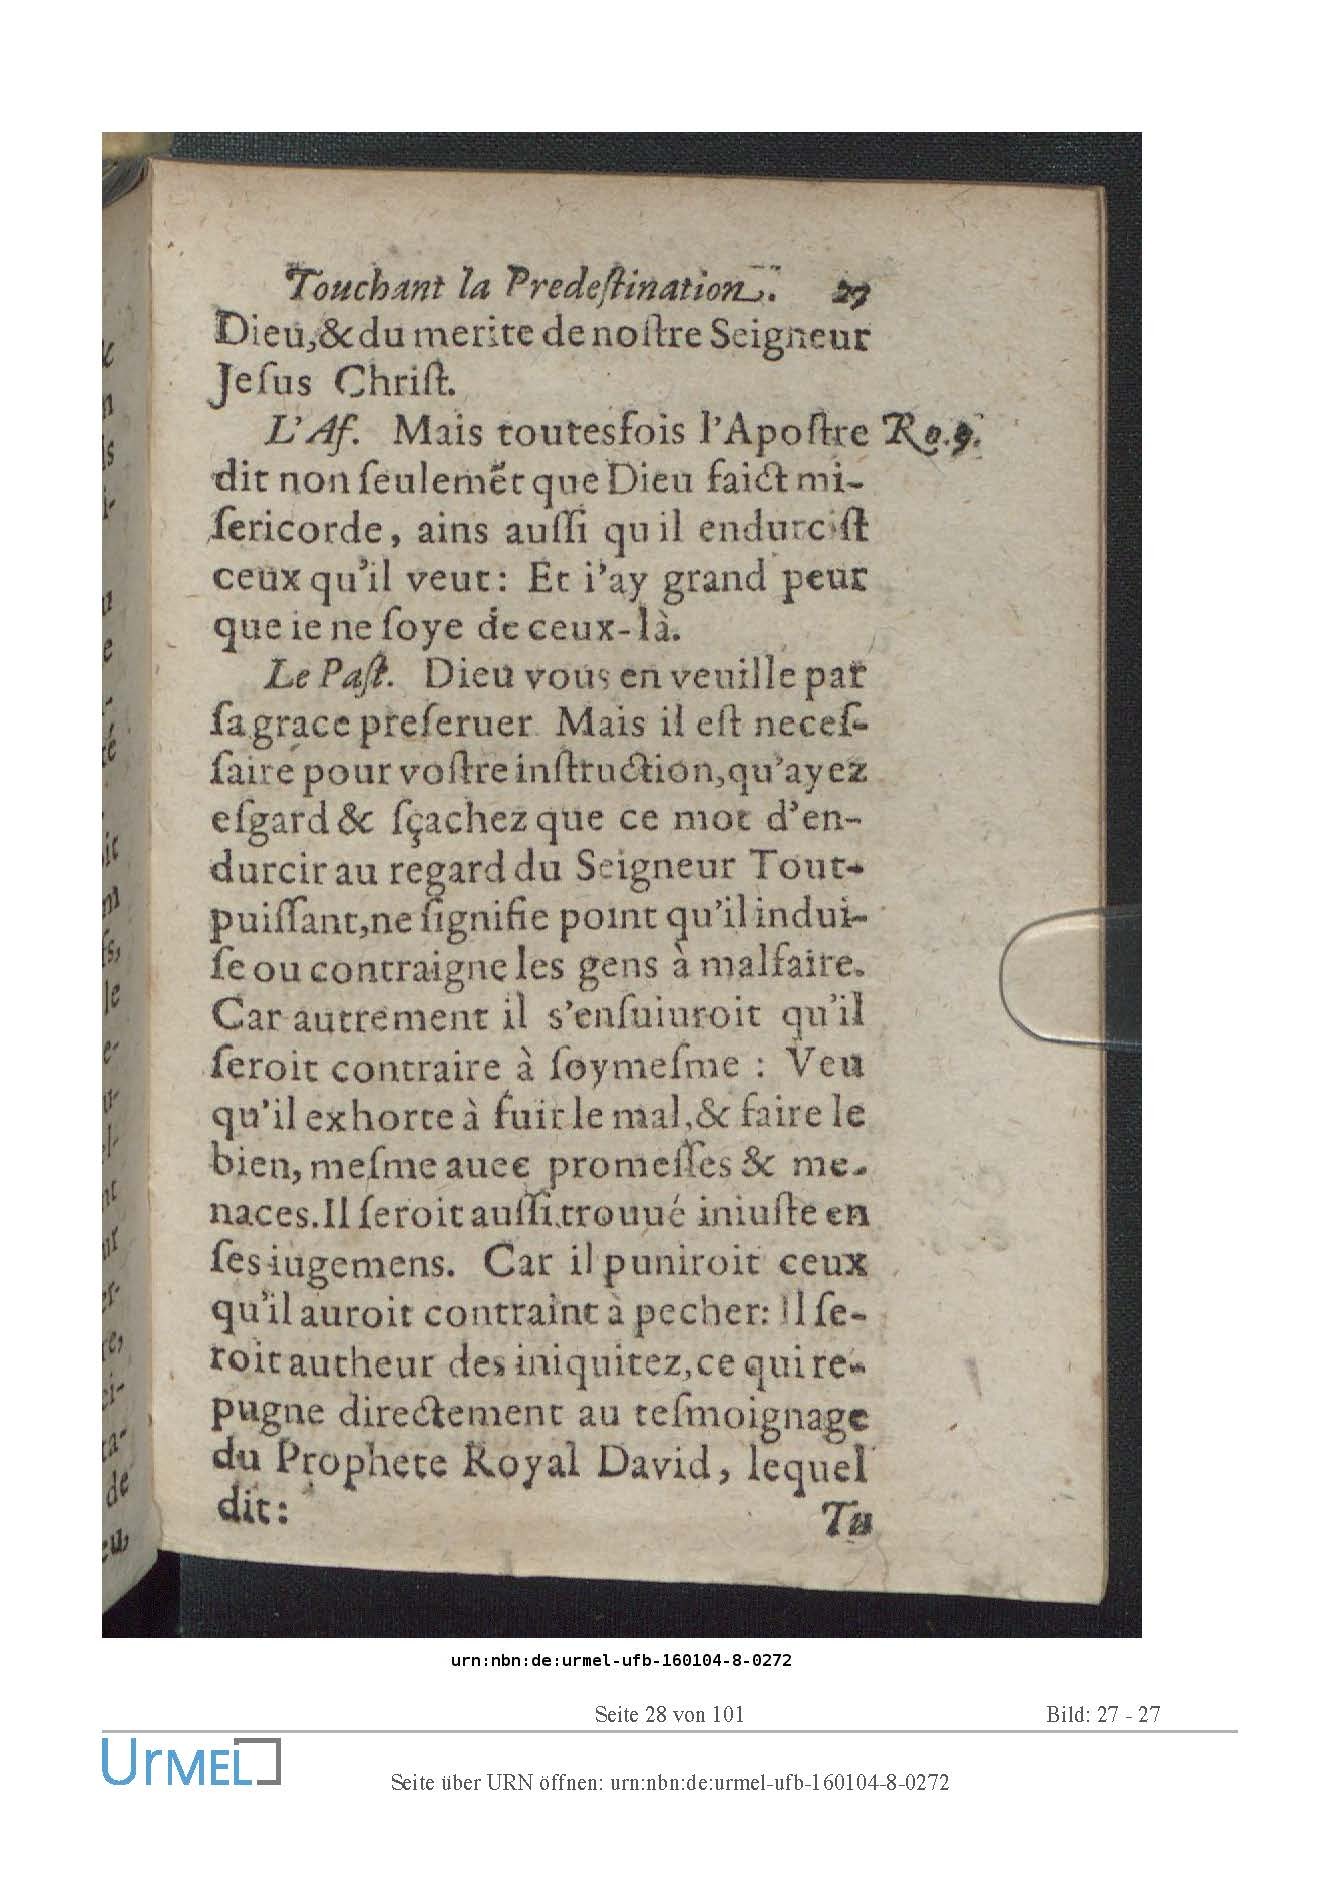 Touchant la Predeſtination. 27
Dieu,& du merite de noſtre Seigneur
Jeſus Chriſt.
L'Af. Mais toutesfois l'Apoſtre Ro.9.
dit non ſeulemẽt que Dieu faict mi-
ſericorde, ains auſſi qu il endurciſt
ceux qu'il veut: Et i'ay grand peur
que ie ne ſoye de ceux-là.
Le Paſt. Dieu vous en veuille par
ſa grace preſeruer Mais il eſt neceſ-
ſaire pour voſtre inſtruction,qu'ayez
eſgard & ſçachez que ce mot d'en-
durcir au regard du Seigneur Tout-
puiſſant,ne ſignifie point qu'il indui-
ſe ou contraigne les gens à malfaire.
Car autrement il s'enſuiuroit qu'il
ſeroit contraire à ſoymeſme : Veu
qu'il exhorte à fuir le mal,& faire le
bien, meſme auec promeſſes & me-
naces.Il ſeroit auſſi trouué iniuſte en
ſes iugemens. Car il puniroit ceux
qu'il auroit contraint à pecher: Il ſe-
roit autheur des iniquitez,ce qui re-
pugne directement au teſmoignage
du Prophete Royal David, lequel
dit: Tu
urn:nbn:de:urmel-ufb-160104-8-0272
Seite 28 von 101 Bild: 27 - 27
UrMEL
Seite über URN öffnen: urn:nbn:de:urmel-ufb-160104-8-0272